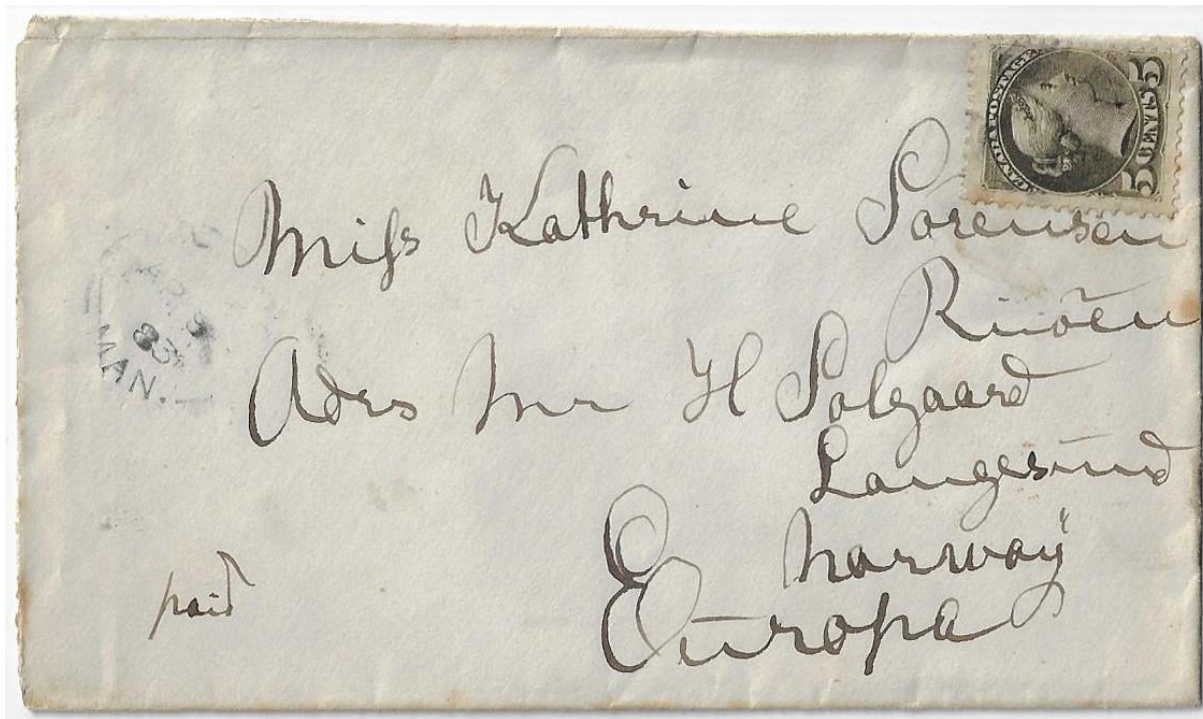 CANADA POSTAGE
5 CENTS 5
Miss Kathrine Sorensen
Rivöen
Adrs Mr H Solgaard
Langesund
Norway
Europa
paid
83
MAN.